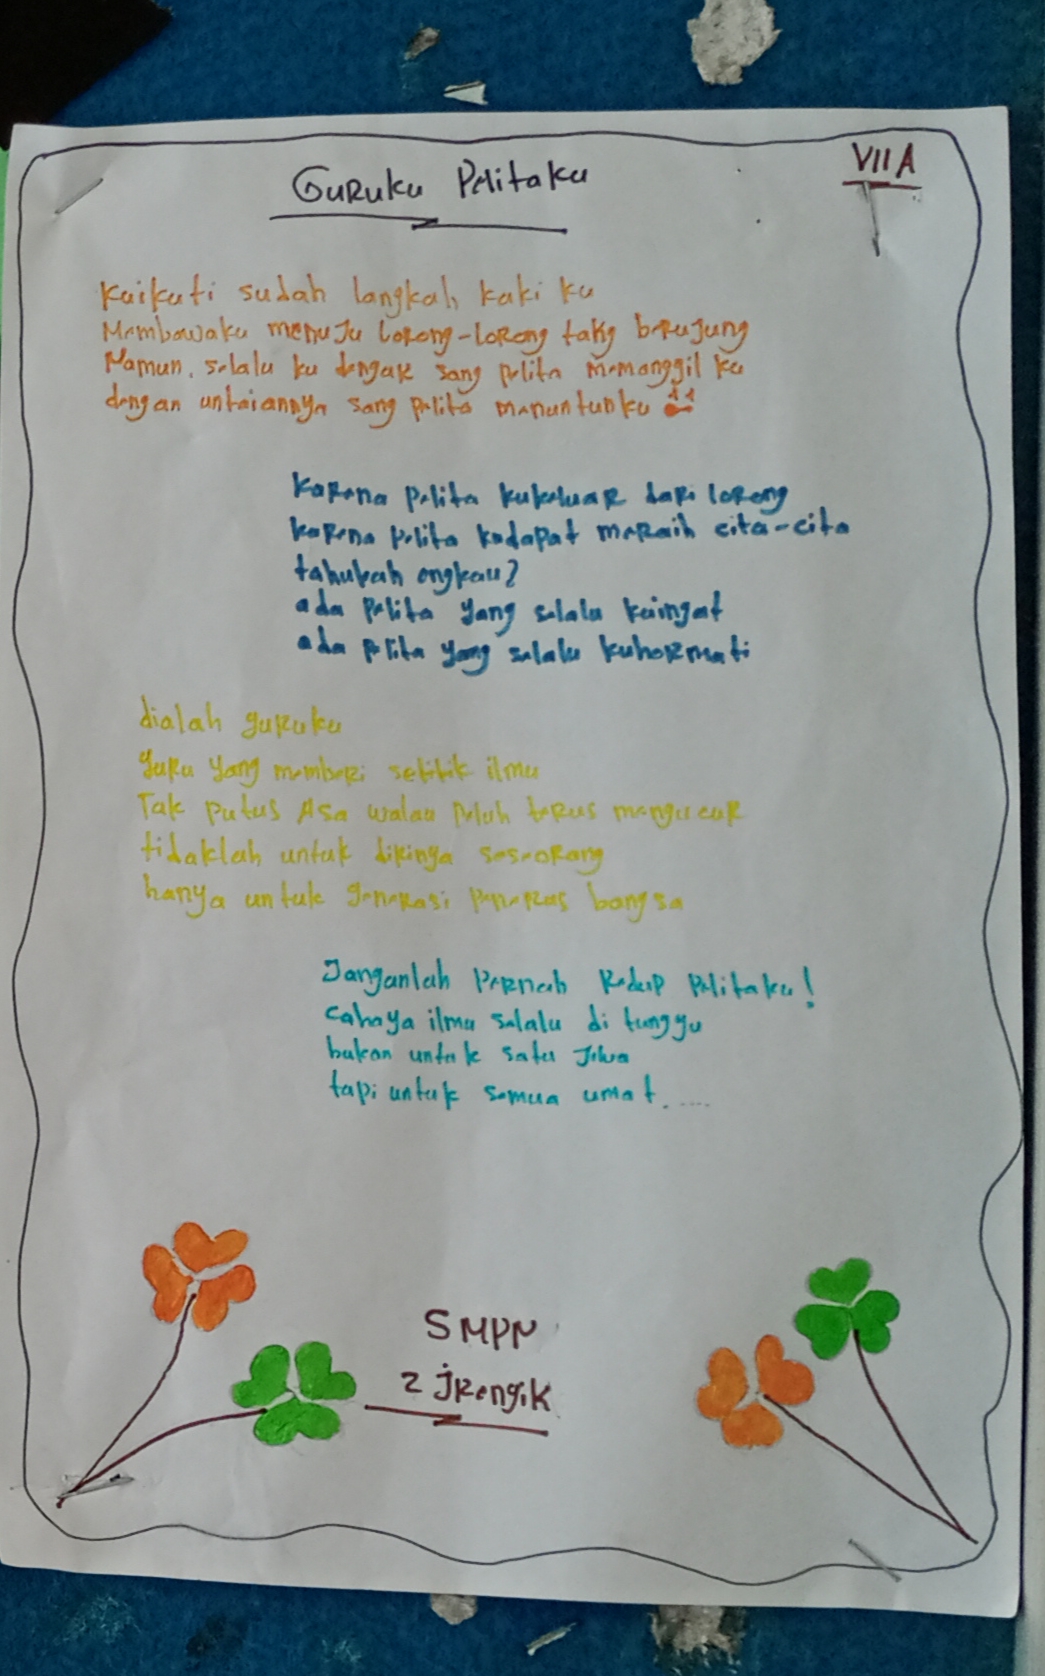 Guruku Pelitaku
VII A
Kuikuti sudah langkah kaki ku
Membawaku menuju lorong-lorong takg berujung
Namun, selalu ku dengar sang pelita memanggil ku
dengan untaiannya sang pelita menuntunku
karena pelita kukeluar dari lorong
karena pelita kudapat meraih cita-cita
tahukah engkau?
ada pelita yang selalu kuingat
ada pelita yang selalu kuhormati
dialah guruku
guru yang memberi setitik ilmu
Tak putus Asa walau peluh terus mengucur
tidaklah untuk dirinya seseorang
hanya untuk generasi penerus bangsa
Janganlah Pernah Redup Pelitaku!
cahaya ilmu selalu di tunggu
bukan untuk satu Jiwa
tapi untuk semua umat.....
SMPN
2 jRengik